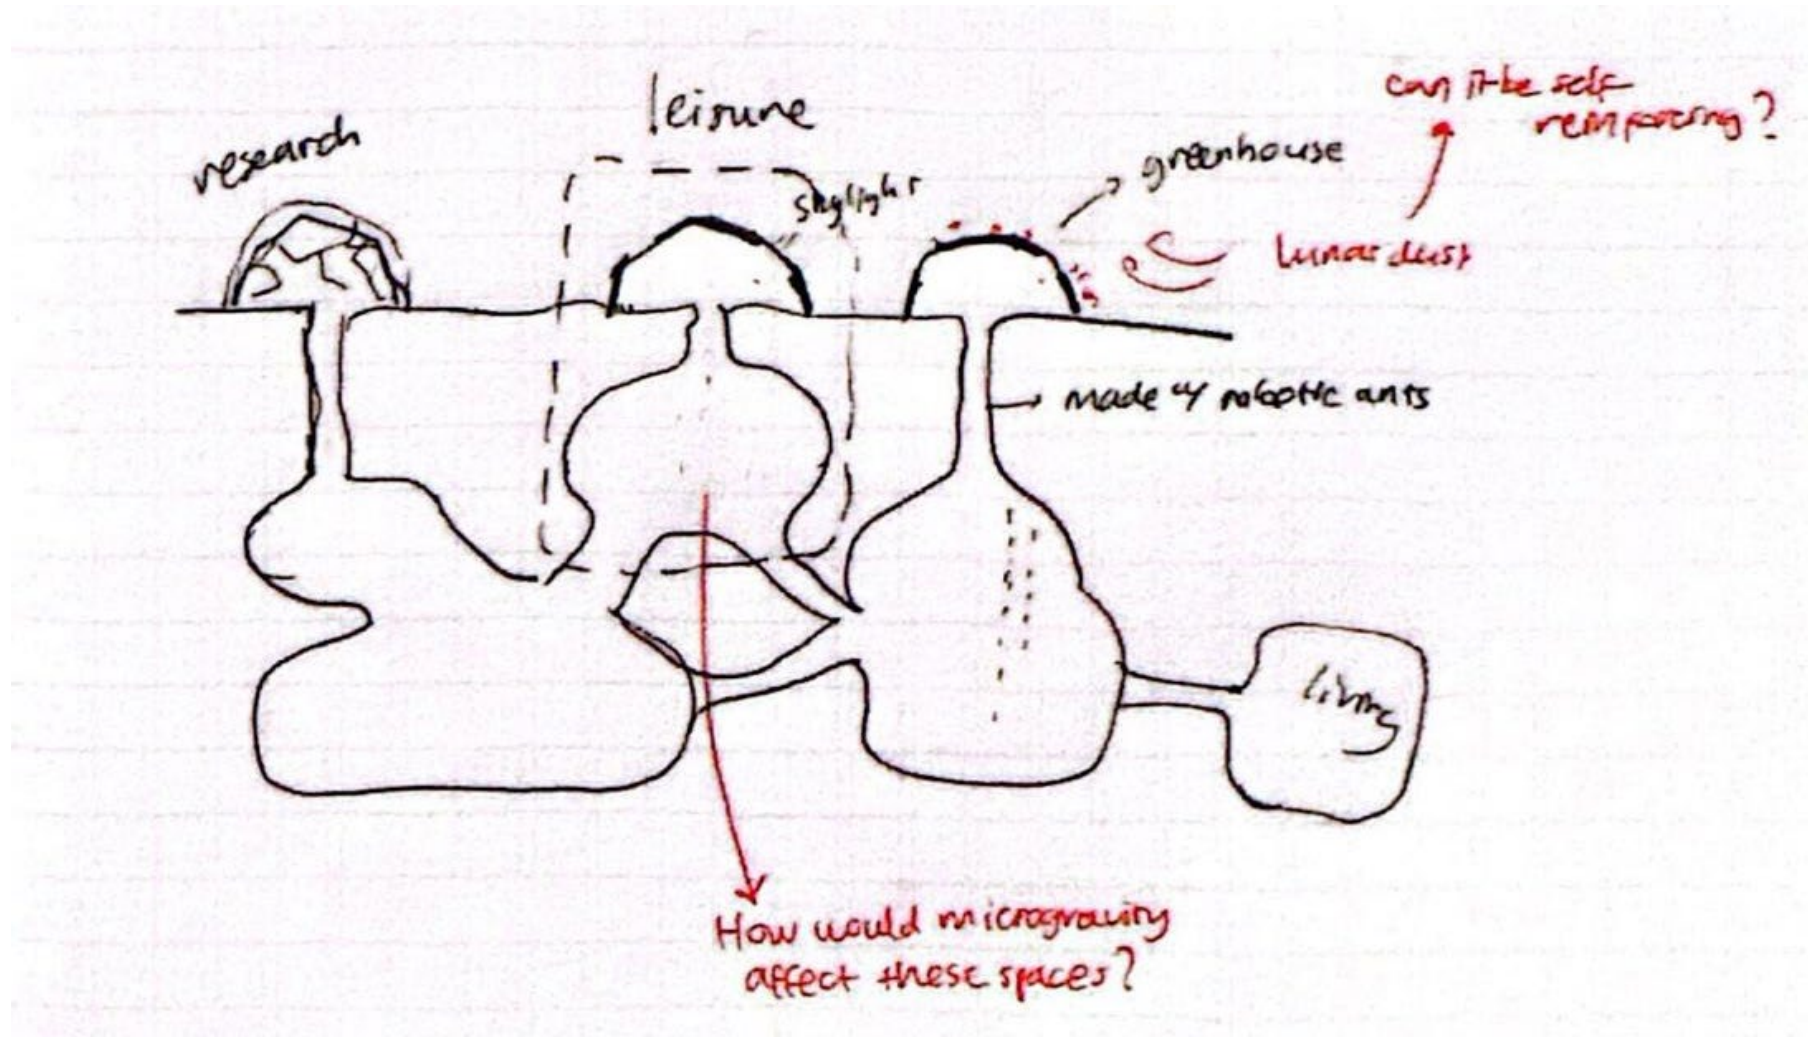 research
leisure
skylight
greenhouse
can it be self
reinforcing?
lunar dust
made w/ robotic ants
living
How would microgravity
affect these spaces?